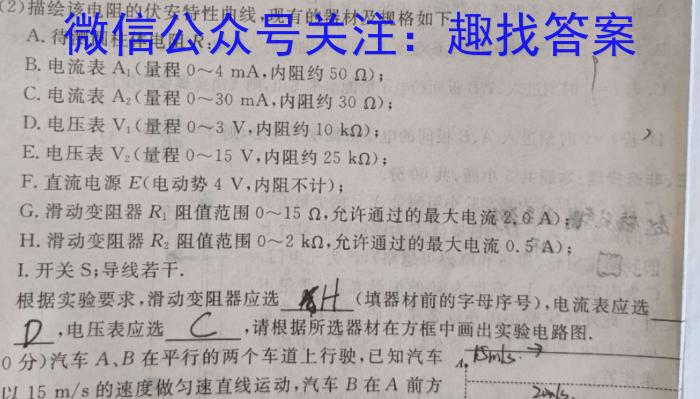 (2)描绘该电阻的伏安特性曲线,现有的器材及规格如下
微信公众号关注：趣找答案
A. 待
B. 电流表 A₁(量程 0～4 mA,内阻约 50 Ω);
C. 电流表 A₂(量程 0～30 mA,内阻约 30 Ω);
D. 电压表 V₁(量程 0～3 V,内阻约 10 kΩ);
E. 电压表 V₂(量程 0～15 V,内阻约 25 kΩ);
F. 直流电源 E(电动势 4 V,内阻不计);
G. 滑动变阻器 R₁ 阻值范围 0～15 Ω,允许通过的最大电流 A);
H. 滑动变阻器 R₂ 阻值范围 0～2 kΩ,允许通过的最大电流 0.5 A);
I. 开关 S;导线若干.
根据实验要求,滑动变阻器应选 H (填器材前的字母序号),电流表应选
D ,电压表应选 C ,请根据所选器材在方框中画出实验电路图.
0 分)汽车 A、B 在平行的两个车道上行驶,已知汽车 15m/s
以 15 m/s 的速度做匀速直线运动,汽车 B 在 A 前方 20m/s